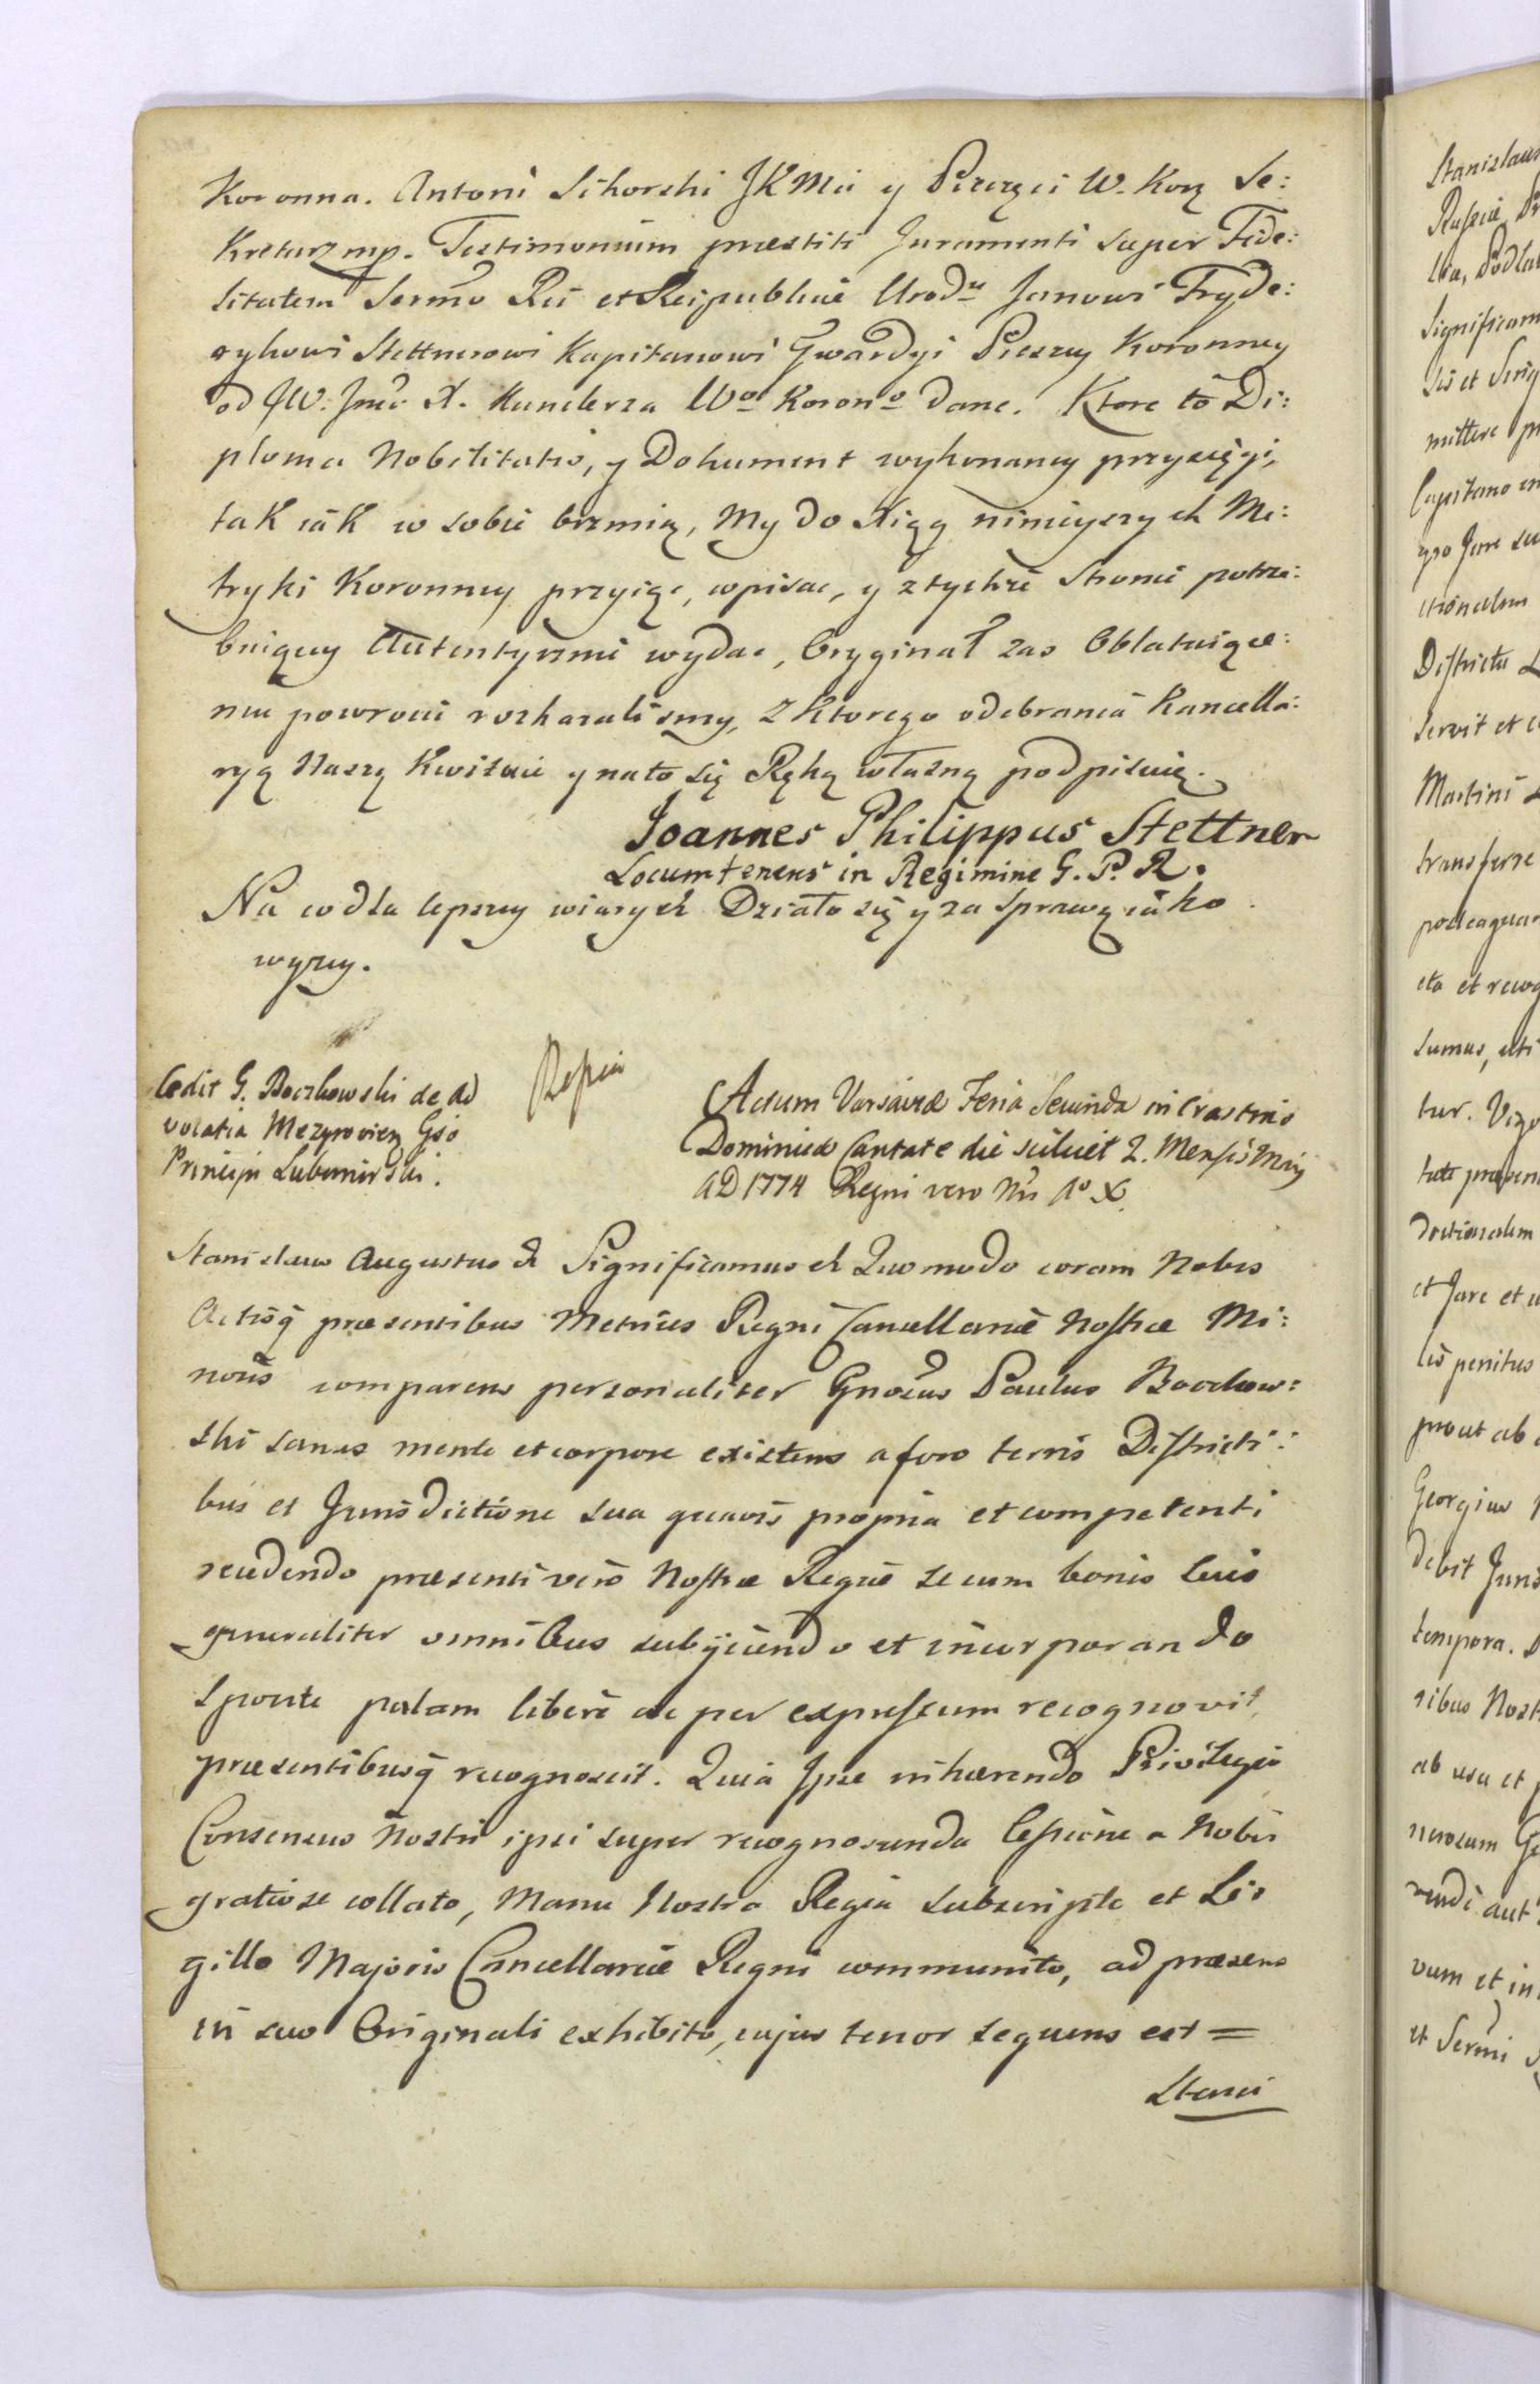 Koronna. Antoni Sikorski JKMci y Pieczęci W. Korz Se:
kretarz mp. Testimonium præstiti Juramenti super Fide:
litatem Sermo Rei et Reipublicæ Urodu Janowi Fryde:
rykowi Stettnerowi Kapitanowi Gwardyi Pieszey Koronney
od JW. Jmci X. Kanclerza Wo Korono dane. Ktore to Di:
ploma Nobilitatis, y Dokument wykonaney przysięgi,
tak iak w sobie brzmią, My do Xiąg ninieyszych Me:
tryki Koronney przyiąc, wpisac, y z tychże Stronie potrze:
buiącey Autentycznie wydac, Oryginał zas Oblatuiące:
mu powrocic rozkazalismy, Z ktorego odebrania Kancella:
ryą Naszą Kwituie y na to się Ręką własną podpisuie.
Joannes Philippus Stettner
Locumtenens in Regimine G. P. R.
Na co dla lepszey wiary et Działo się y za Sprawą iako
wyzey.
Cedit G. Boczkowski de Ad
vocatia Mezyrowien Gso
Principi Lubomirski.
Actum Varsaviæ Feria Secunda in Crastino
Dominicæ Cantate die scilicet 2. Mensis Maij
AD 1774 Regni vero Nri Ao X.
Stanislaus Augustus et Significamus et Quomodo coram Nobis
Actisq præsentibus Metrices Regni Cancellariæ Nostræ Mi:
noris comparens personaliter Gnosus Paulus Boczkow:
ski sanus mente et corpore existens a foro terris Districti:
bus et Jurisdictione sua quavis propria et competenti
recedendo præsenti vero Nostræ Regiæ se cum bonis suis
generaliter omnibus subjiciendo et incorporando
sponte palam libere ac per expressum recognovit,
præsentibusq recognoscit. Quia Ipse inhærendo Privilegio
Consensus Nostri ipsi super recognoscenda Cessione a Nobis
gratiose collato, Manu Nostra Regia subscripto et Si:
gillo Majoris Cancellariæ Regni communito, ad præsens
in suo Originali exhibito, cujus tenor sequens est =
Stani
Stanislaus
Russiæ
Significam
mittere
Capitano
Districtu
Servit et
Martini
transferre
sumus, uti
et Jure et
penitus
prout ab
Georgius
debit
tempora.
ribus Nost
ab usu et
vum et in
et Sermi